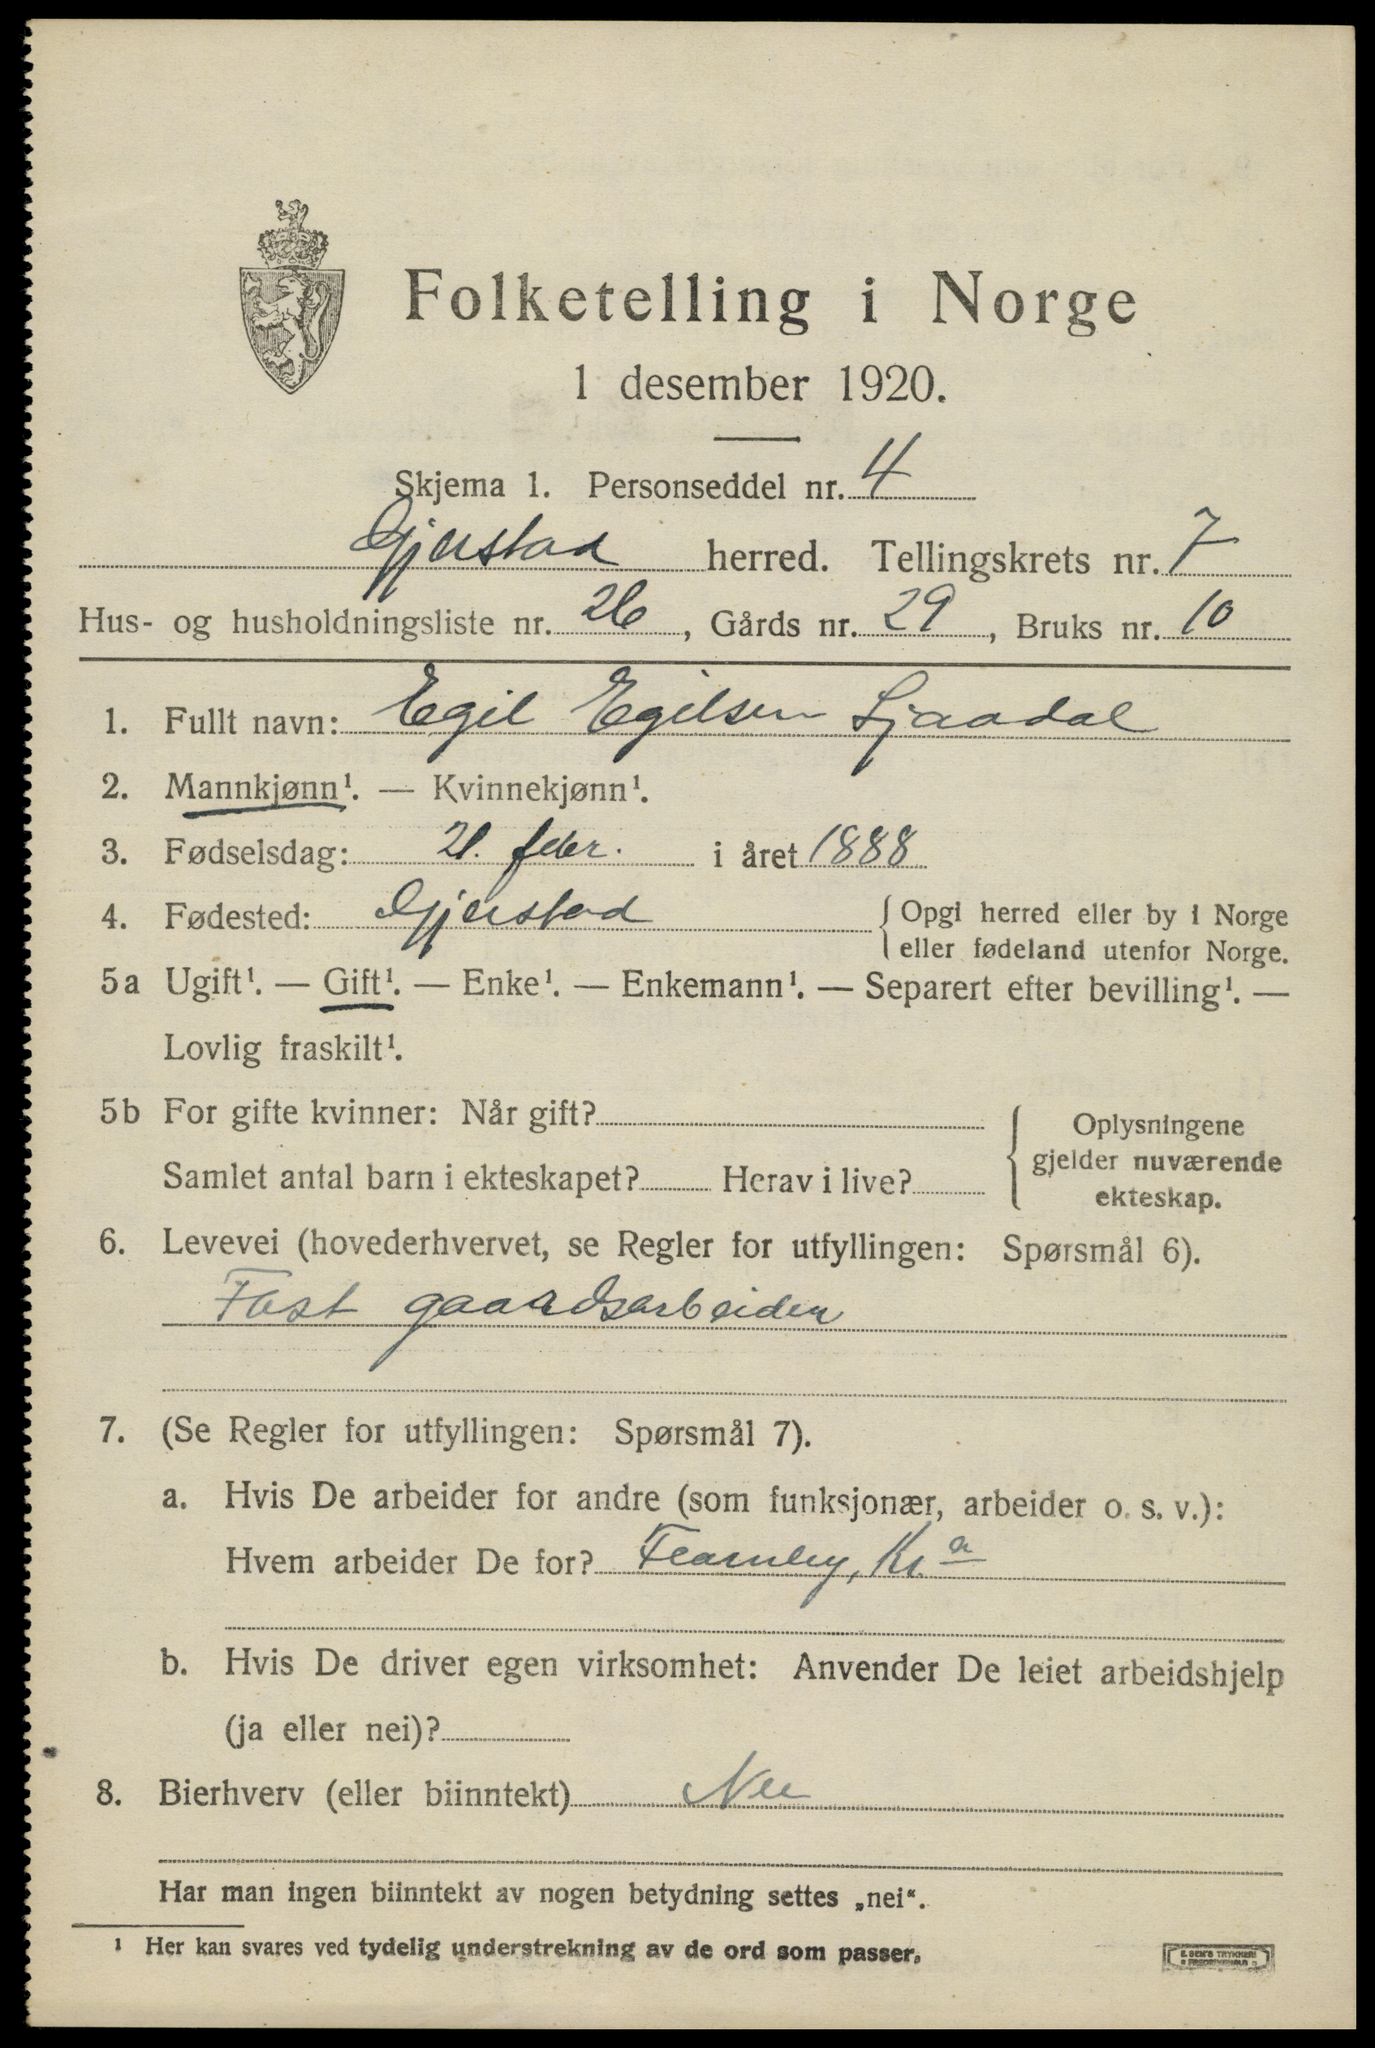 Folketelling i Norge
1 desember 1920.
Skjema 1. Personseddel nr. 4
Gjerstad herred. Tellingskrets nr. 7
Hus- og husholdningsliste nr. 26, Gårds nr. 29, Bruks nr. 10
1. Fullt navn: Egil Egilsen Ljaadal
2. Mannkjønn¹. — Kvinnekjønn¹.
3. Fødselsdag: 21. febr. i året 1888
4. Fødested: Gjerstad { Opgi herred eller by i Norge
eller fødeland utenfor Norge.
5a Ugift¹. — Gift¹. — Enke¹. — Enkemann¹. — Separert efter bevilling¹. —
Lovlig fraskilt¹.
5b For gifte kvinner: Når gift? { Oplysningene
gjelder nuværende
ekteskap.
Samlet antal barn i ekteskapet? Herav i live?
6. Levevei (hovederhvervet, se Regler for utfyllingen: Spørsmål 6).
Fast gaardsarbeider
7. (Se Regler for utfyllingen: Spørsmål 7).
a. Hvis De arbeider for andre (som funksjonær, arbeider o. s. v.):
Hvem arbeider De for? Fearnley, Kr.a
b. Hvis De driver egen virksomhet: Anvender De leiet arbeidshjelp
(ja eller nei)?
8. Bierhverv (eller biinntekt) Nei
Har man ingen biinntekt av nogen betydning settes „nei“.
¹ Her kan svares ved tydelig understrekning av de ord som passer.